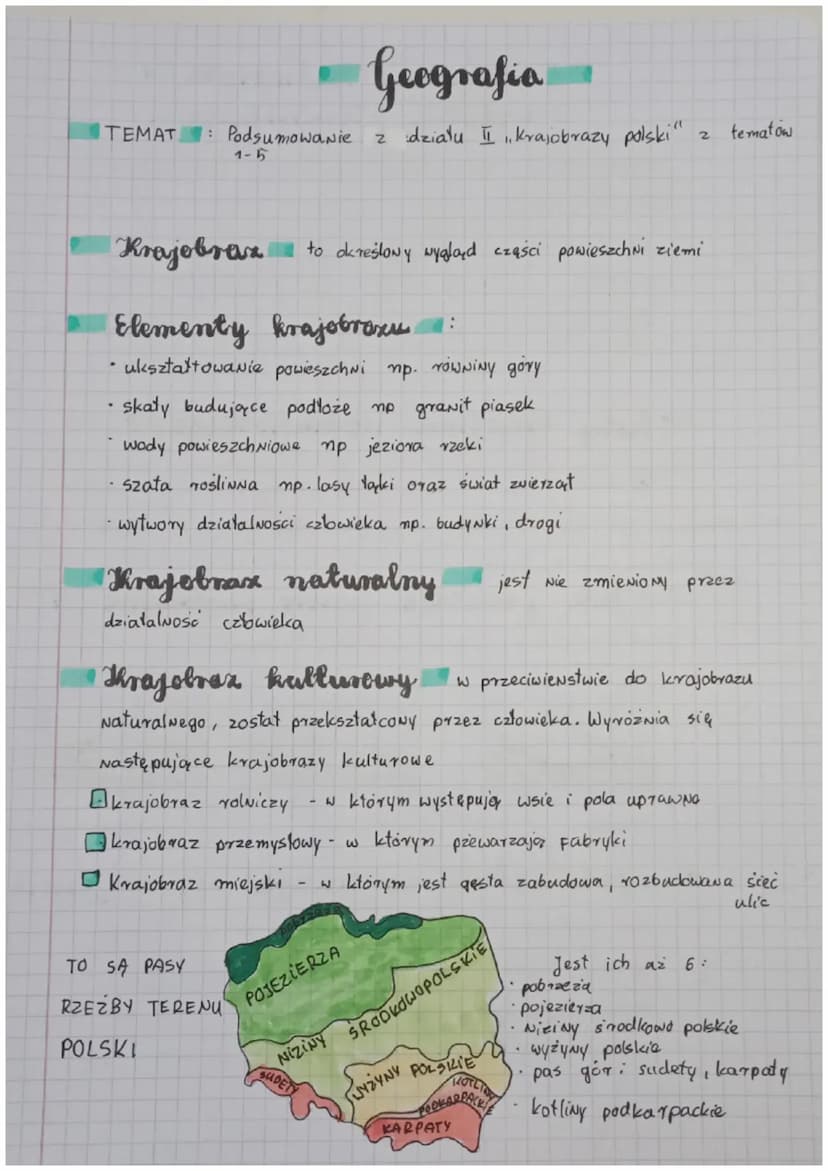 Geografia
TEMAT : Podsumowanie z działu II „krajobrazy polski" z tematów
1-5
Krajobraz to określony wygląd części powieszchni ziemi
Elementy krajobrazu :
· ukształtowanie powieszchni np. równiny góry
· skały budujące podłoże np granit piasek
· wody powieszchniowe np jeziora rzeki
· szata roślinna np. lasy łąki oraz świat zwierząt
· wytwory działalności człowieka np. budynki, drogi
Krajobraz naturalny jest nie zmieniony przez
działalność człowieka
Krajobraz kulturowy w przeciwienstwie do krajobrazu
naturalnego, został przekształcony przez człowieka. Wyróżnia się
następujące krajobrazy kulturowe
krajobraz rolniczy - w którym występują wsie i pola uprawne
krajobraz przemysłowy - w którym pzewarzają fabryki
Krajobraz miejski - w którym jest gęsta zabudowa, rozbudowana śieć
ulic
TO SĄ PASY
RZEŹBY TERENU
POLSKI
POBRZEŻA
POJEZIERZA
NIZINY ŚRODKOWOPOLSKIE
WYŻYNY POLSKIE
SUDETY
KOTLINY
PODKARPACKIE
KARPATY
Jest ich aż 6:
· pobrzeża
· pojezierza
· Niziny środkowo polskie
· wyżyny polskie
· pas gór: sudety, karpaty
· kotliny podkarpackie